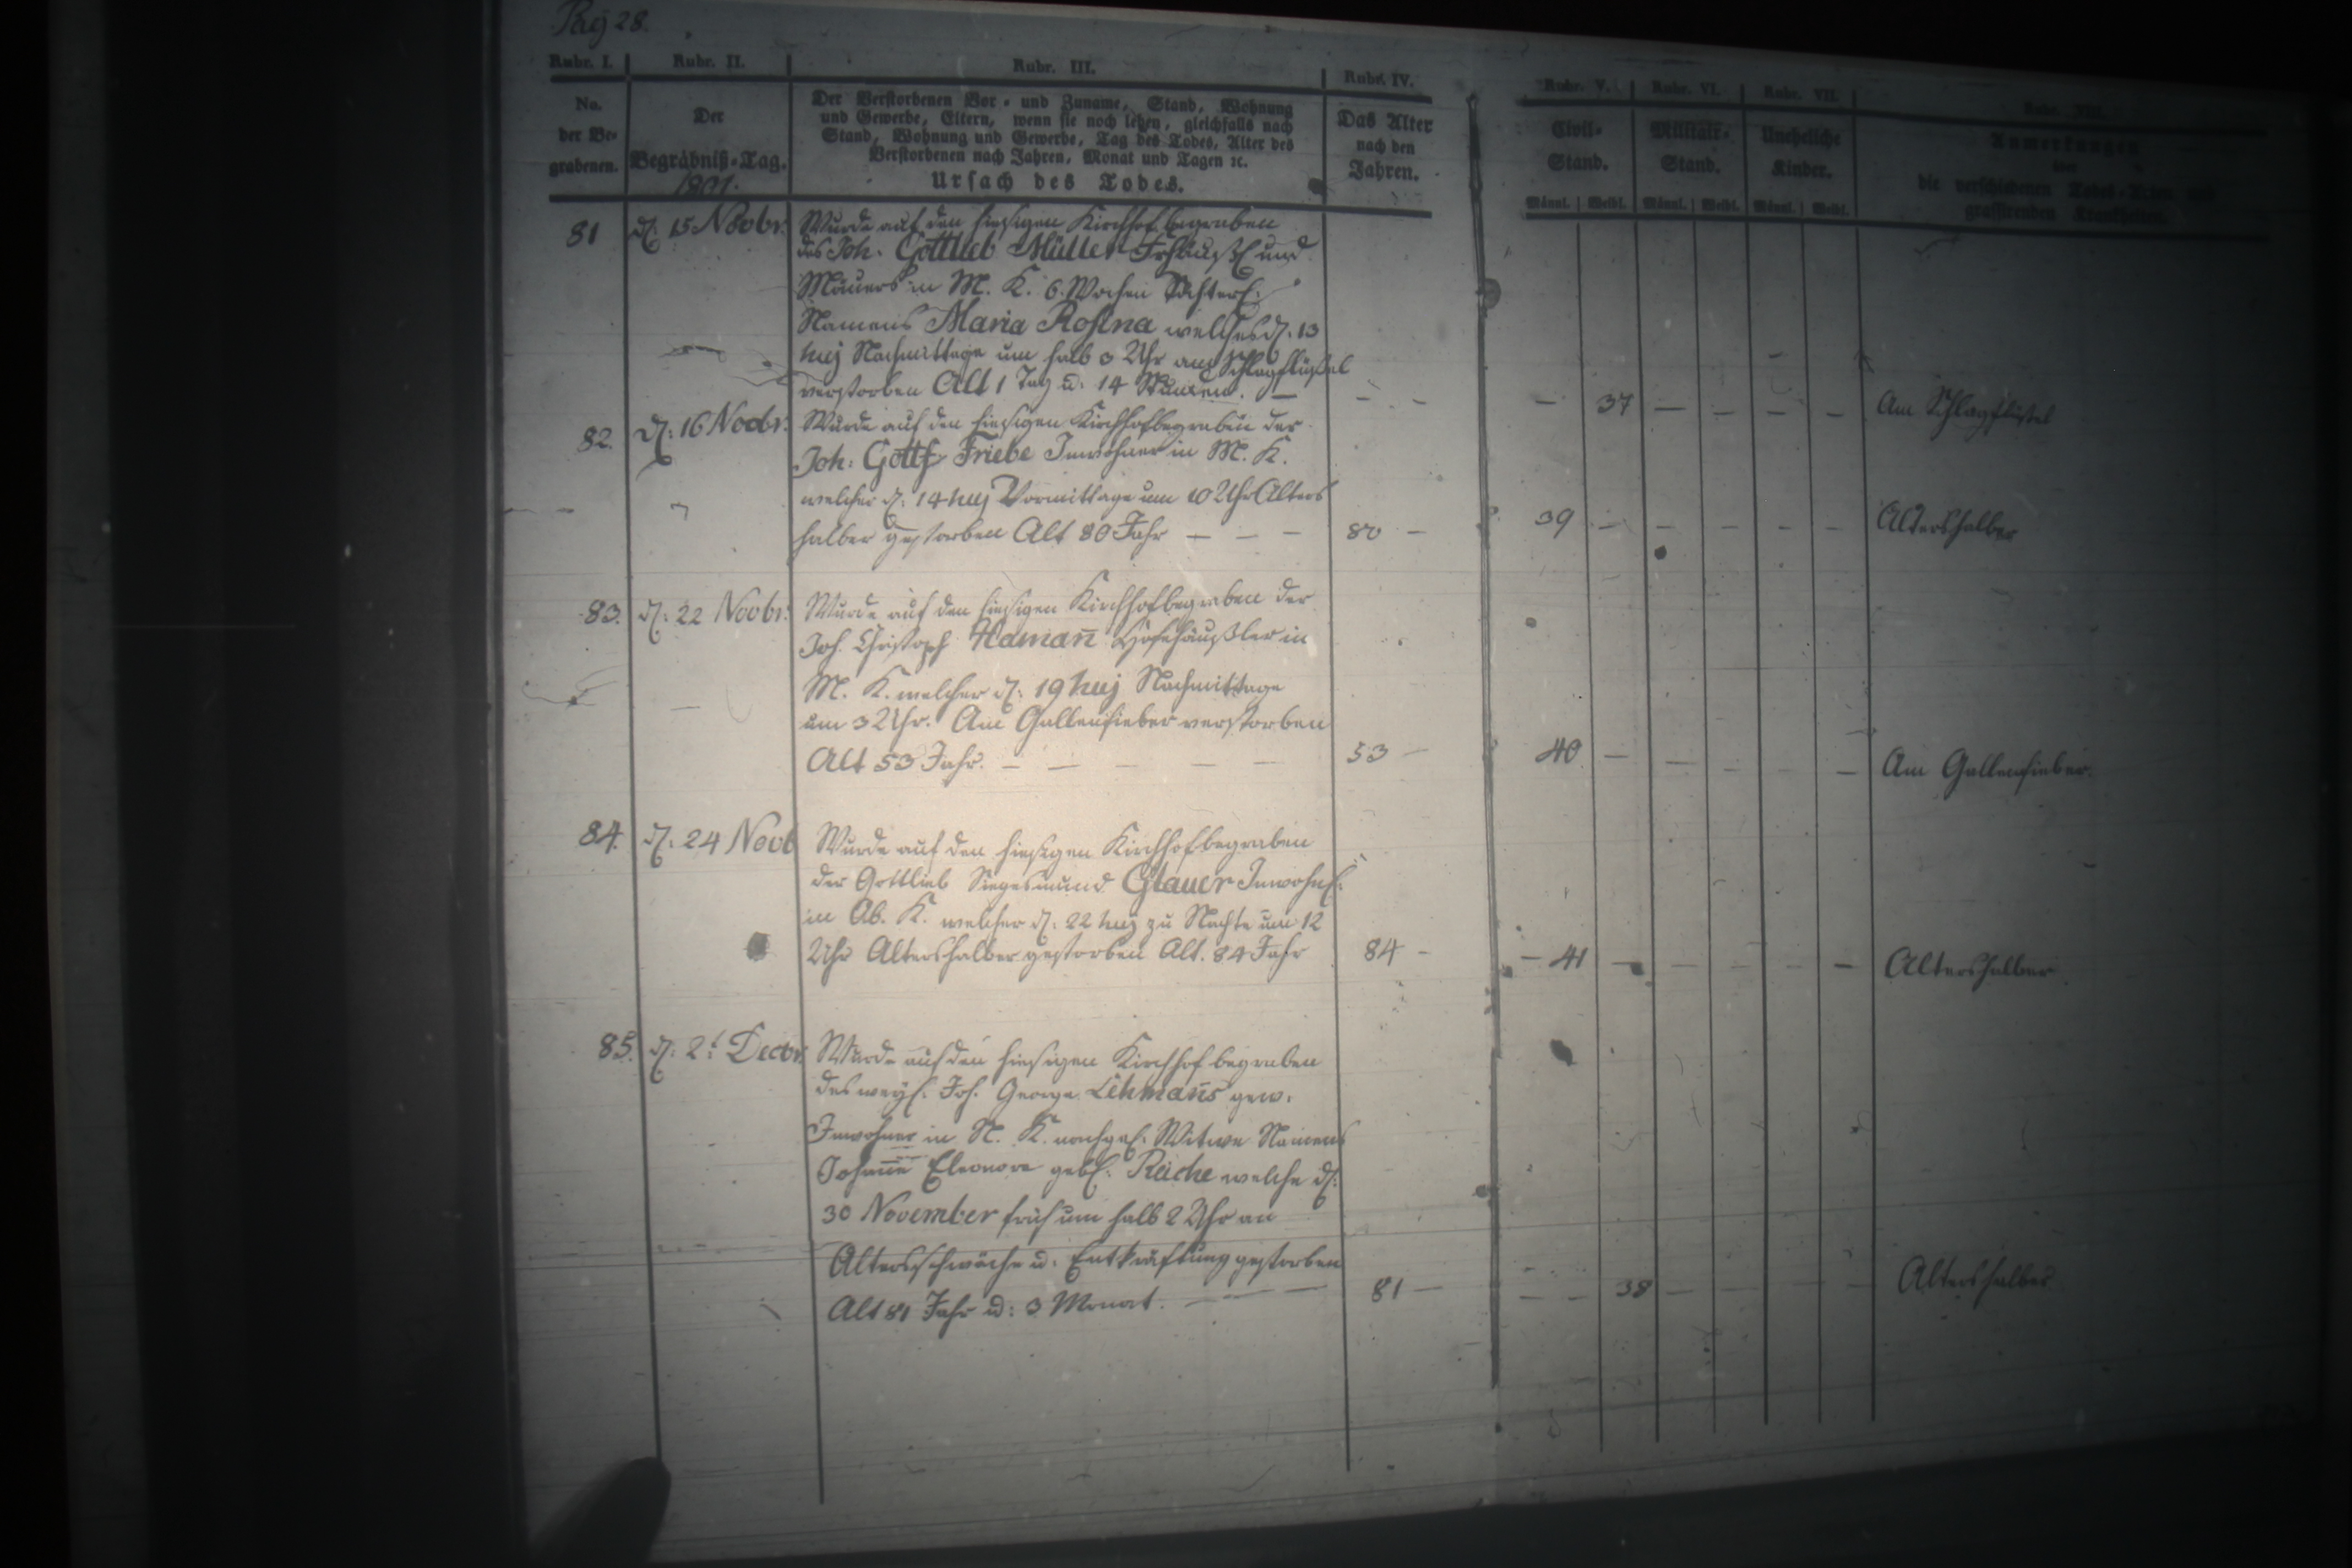 Pag 28.
Rubr. I. Rubr. II. Rubr. III. Rubr. IV. Rubr. V. Rubr. VI. Rubr. VII.
No. der Begrabenen.
Der Begräbniß-Tag.
1801.
Der Verstorbenen Vor- und Zuname, Stand, Wohnung
und Gewerbe, Eltern, wenn sie noch leben, gleichfalls nach
Stand, Wohnung und Gewerbe, Tag des Todes, Alter des
Verstorbenen nach Jahren, Monat und Tagen ꝛc.
Ursach des Todes.
Das Alter
nach den
Jahren.
Civil-
Stand.
Militair-
Stand.
Uneheliche
Kinder.
Anmerkungen
über
die verschiedenen Todes-Arten und
grassirenden Krankheiten.
Männl. Weibl. Männl. Weibl. Männl. Weibl.
81 d. 15 Novbr. Wurde auf den hiesigen Kirchhof begraben
des Joh. Gottlieb Müller und
Mauers in M. K. 6. Wochen Töchterl.
Namens Maria Rosina welches d. 13
huj Nachmittage um halb 3 Uhr am Schlagflüßel
verstorben Alt 1 Tag u. 14 Stunden. — - - — 37 — - - - Am Schlagflüßel
82. d: 16 Novbr. Wurde auf den hiesigen Kirchhof begraben der
Joh: Gottf Friebe Inwohner in M. K.
welcher d. 14 huj Vormittage um 10 Uhr Alters
halber gestorben Alt 80 Jahr — — — 80 — 39 — - - - - Altershalber
83. d: 22 Novbr: Wurde auf den hiesigen Kirchhof begraben der
Joh. Christoph Haman̄ Hofehäußler in
M. K. welcher d: 19 huj Nachmittage
um 3 Uhr. Am Gallenfieber verstorben
Alt 53 Jahr. — — — — — 53 — 40 — - - - — Am Gallenfieber.
84. d: 24 Novb Wurde auf den hiesigen Kirchhof begraben
der Gottlieb Siegesmund Glauer Inwohn.
in Ob. K. welcher d: 22 huj zu Nachts um 12
Uhr Altershalber gestorben Alt. 84 Jahr 84 - - 41 — - - - — Altershalber
85. d: 2t Decbr. Wurde auf den hiesigen Kirchhof begraben
des weyl. Joh. George Lehman̄s gew.
Inwohner in N. K. nachgel. Witwe Namens
Johan̄e Eleonore gebl. Reiche welche d:
30 November früh um halb 2 Uhr an
Altersschwäche u. Entkräftung gestorben
Alt 81 Jahr u: 3 Monat. — — — 81 — - - 38 — - - - Altershalber